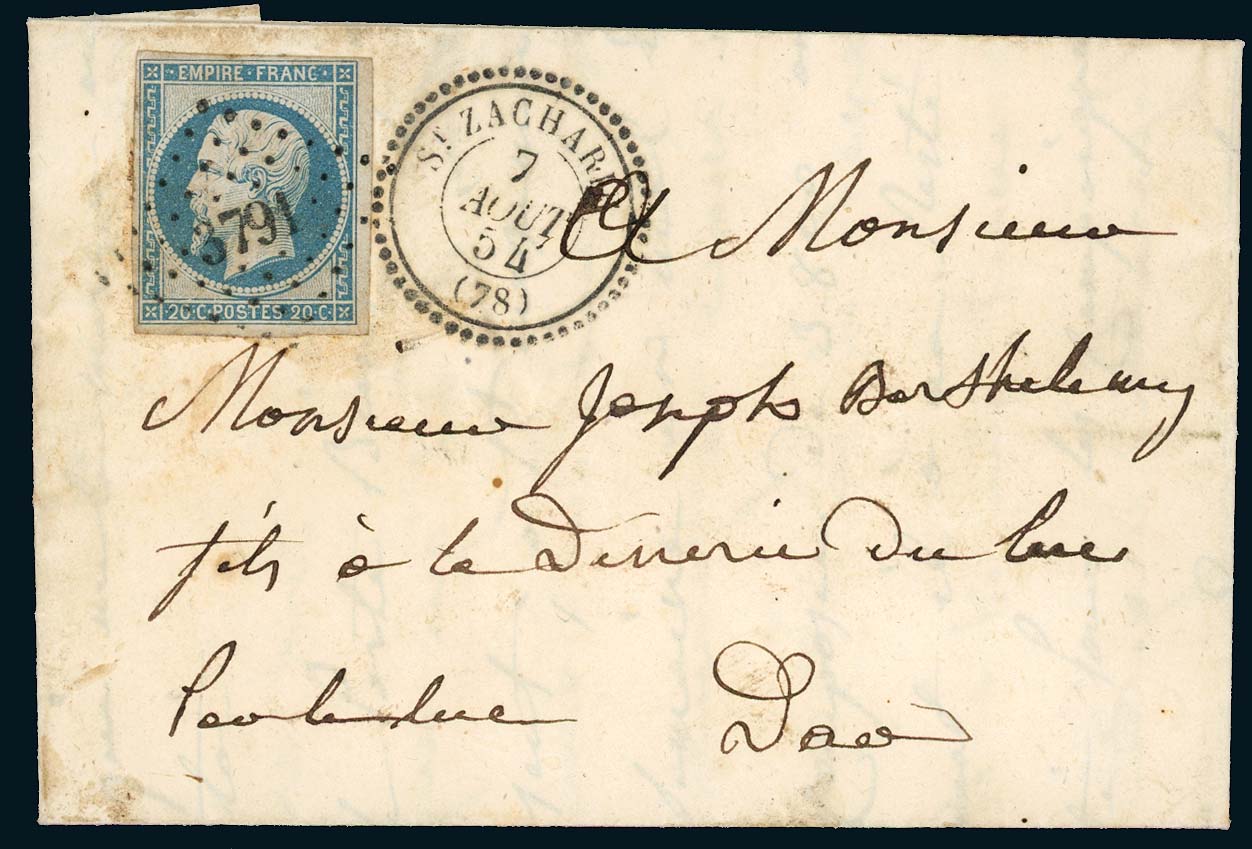 EMPIRE·FRANC·
3791
20·C·POSTES 20·C·
ST ZACHARIE
7
AOUT
54
(78)
A Monsieur
Monsieur Joseph Barthelemy
fils à la Verrerie Du Luc
Var